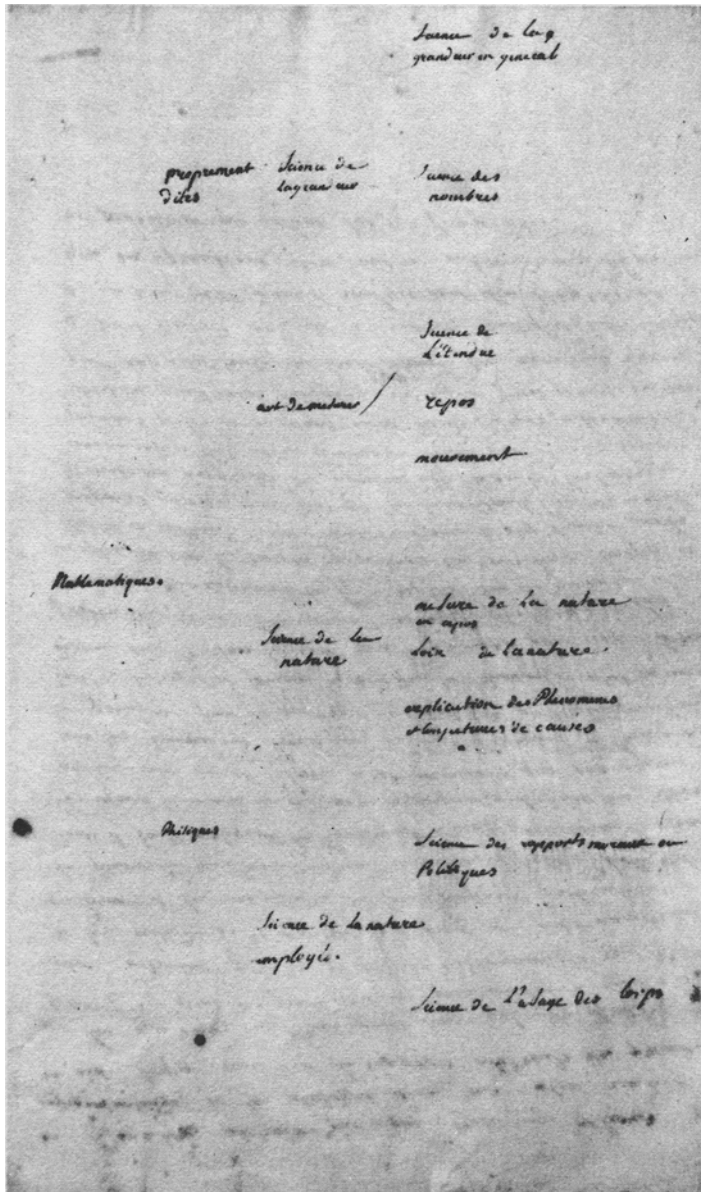 Science de la
grandeur en general
proprement
dites
Science de
la grandeur
Science des
nombres
Science de
L'étendue
art de mesurer /
repos
mouvement
Mathematiques.
mesure de La nature
en repos
Science de La
nature
Loix de la nature.
explication des Phenomenes
et conjectures de causes
Phisiques
Science des rapports moraux ou
Politiques
Science de La nature
employée.
Science de L'usage des Corps